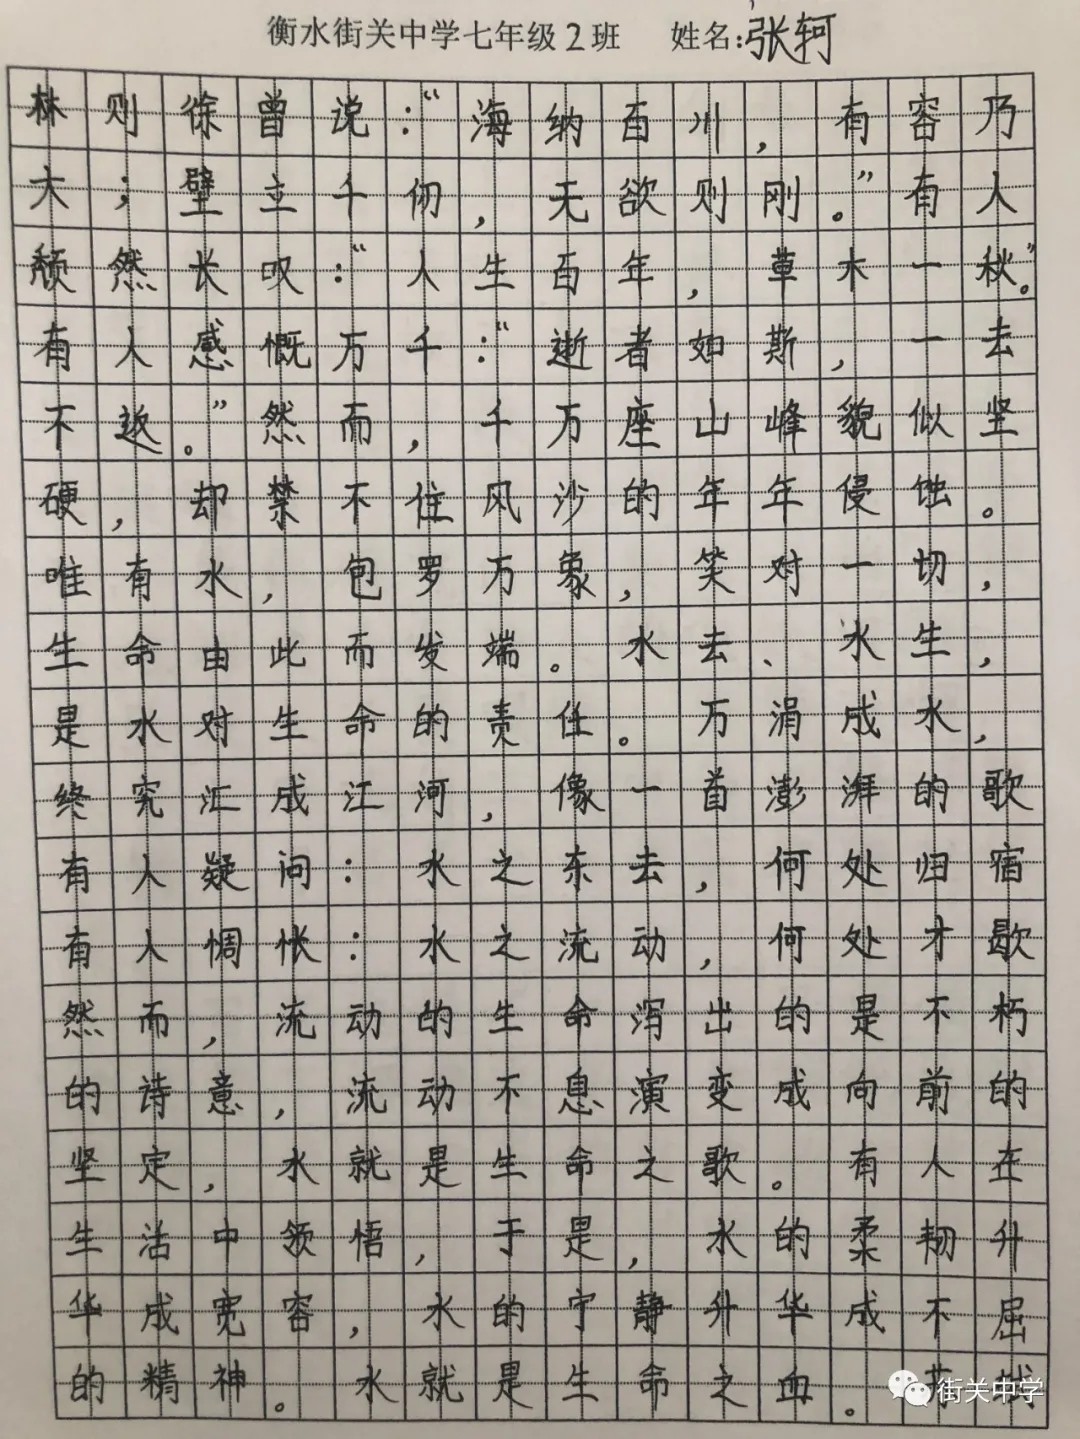 衡水街关中学七年级2班 姓名:张轲
林则徐曾说:“海纳百川,有容乃
大;壁立千仞,无欲则刚。”有人
颓然长叹:“人生百年,草木一秋。”
有人感慨万千:“逝者如斯,一去
不返。”然而,千万座山峰貌似坚
硬,却禁不住风沙的年年侵蚀。
唯有水,包罗万象,笑对一切,
生命由此而发端。水去、水生,
是水对生命的责任。万涓成水,
终究汇成江河,像一首澎湃的歌
有人疑问:水之东去,何处归宿
有人惆怅:水之流动,何处才歇
然而,流动的生命泻出的是不朽
的诗意,流动不息演变成向前的
坚定,水就是生命之歌。有人在
生活中领悟,于是,水的柔韧升
华成宽容,水的宁静升华成不屈
的精神。水就是生命之血。
街关中学